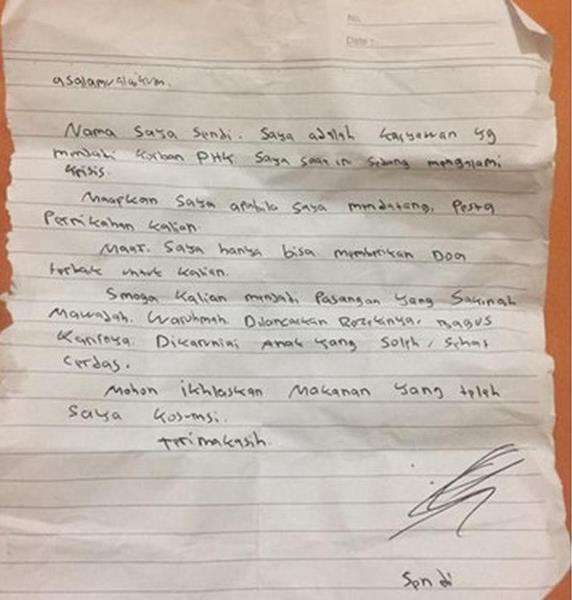 No.
Date :
asalamualaikum.
Nama Saya Sendi. Saya adalah karyawan yg
menjadi korban PHK Saya saat ini sedang mengalami
krisis.
Maapkan Saya apabila Saya mendatangi Pesta
Pernikahan kalian
Maaf. Saya hanya bisa memberikan Doa
terbaik untuk kalian.
Smoga kalian menjadi Pasangan yang Sakinah
Mawadah. Warohmah. Dilancarkan Rezekinya, Bagus
Karirnya. Dikaruniai Anak yang Soleh, Sehat
Cerdas.
Mohon ikhlaskan Makanan yang telah
Saya kosumsi.
Terimakasih.
Sendi